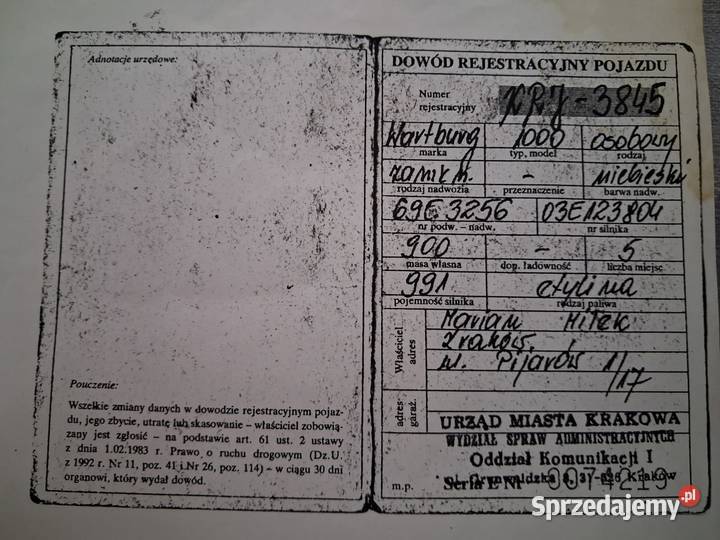 Adnotacje urzędowe:
Pouczenie:
Wszelkie zmiany danych w dowodzie rejestracyjnym pojaz-
du, jego zbycie, utratę lub skasowanie – właściciel zobowią-
zany jest zgłosić – na podstawie art. 61 ust. 2 ustawy
z dnia 1.02.1983 r. Prawo o ruchu drogowym (Dz.U.
z 1992 r. Nr 11, poz. 41 i Nr 26, poz. 114) – w ciągu 30 dni
organowi, który wydał dowód.
DOWÓD REJESTRACYJNY POJAZDU
Numer
rejestracyjny
3845
Wartburg 1000 osobowy
marka typ, model rodzaj
zamkn. - niebieski
rodzaj nadwozia przeznaczenie barwa nadw.
69E3256 03E123804
nr podw. – nadw. nr silnika
900 - 5
masa własna dop. ładowność liczba miejsc
991 etylina
pojemność silnika rodzaj paliwa
Właściciel
adres
Marian
Kraków,
ul. Pijarów 1/17
adres
garaż.
URZĄD MIASTA KRAKOWA
WYDZIAŁ SPRAW ADMINISTRACYJNYCH
Oddział Komunikacji I
Kraków
m.p.
Seria E Nr
Sprzedajemy.pl